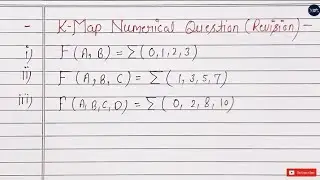 - K-Map Numerical Question (Revision) -
i) F(A, B) = Σ(0,1,2,3)
ii) F(A, B, C) = Σ(1, 3, 5, 7)
iii) F(A, B, C, D) = Σ(0, 2, 8, 10)
SUBSCRIBE